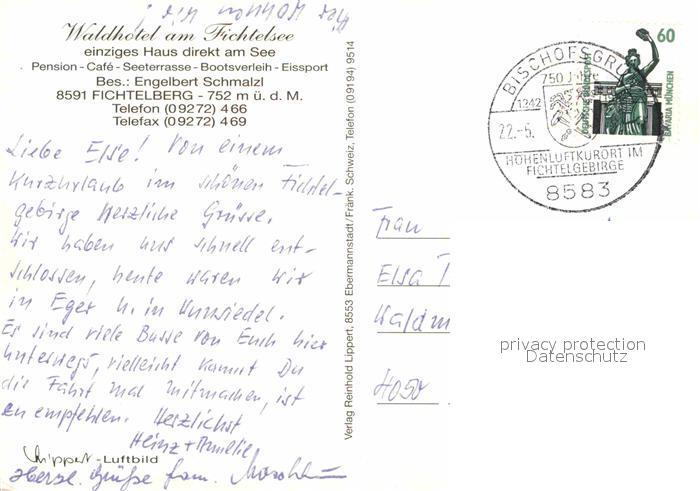 Waldhotel am Fichtelsee
einziges Haus direkt am See
Pension - Café - Seeterrasse - Bootsverleih - Eissport
Bes.: Engelbert Schmalzl
8591 FICHTELBERG - 752 m ü. d. M.
Telefon (09272) 466
Telefax (09272) 469
Liebe Else! Von einem
Kurzurlaub im schönen Fichtel-
gebirge Herzliche Grüsse.
Wir haben uns schnell ent-
schlossen, heute waren wir
in Eger u. in Wunsiedel.
Es sind viele Busse von Euch hier
unterwegs, vielleicht kannst Du
die Fahrt mal mitmachen, ist
zu empfehlen. Herzlichst
Heinz + Amelie
Lippert - Luftbild
herzl. Grüße Fam.
Verlag Reinhold Lippert, 8553 Ebermannstadt/Fränk. Schweiz, Telefon (09194) 9514
BISCHOFSGRÜN
750 Jahre
1242
22.-6.
HÖHENLUFTKURORT IM
FICHTELGEBIRGE
8583
60
DEUTSCHE BUNDESPOST
BAVARIA MÜNCHEN
Frau
Elsa
Waldm
privacy protection
Datenschutz